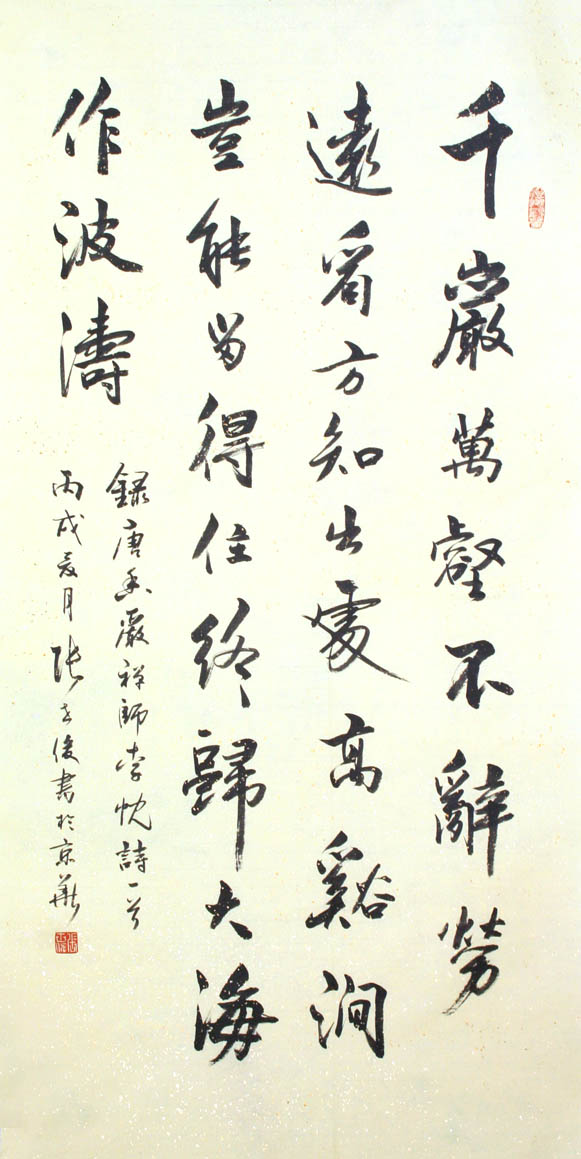 千巖萬壑不辭勞
遠看方知出處高谿澗
豈能留得住終歸大海
作波濤
錄唐香嚴禪師李忱詩一首
丙戌夏月張世俊書於京華